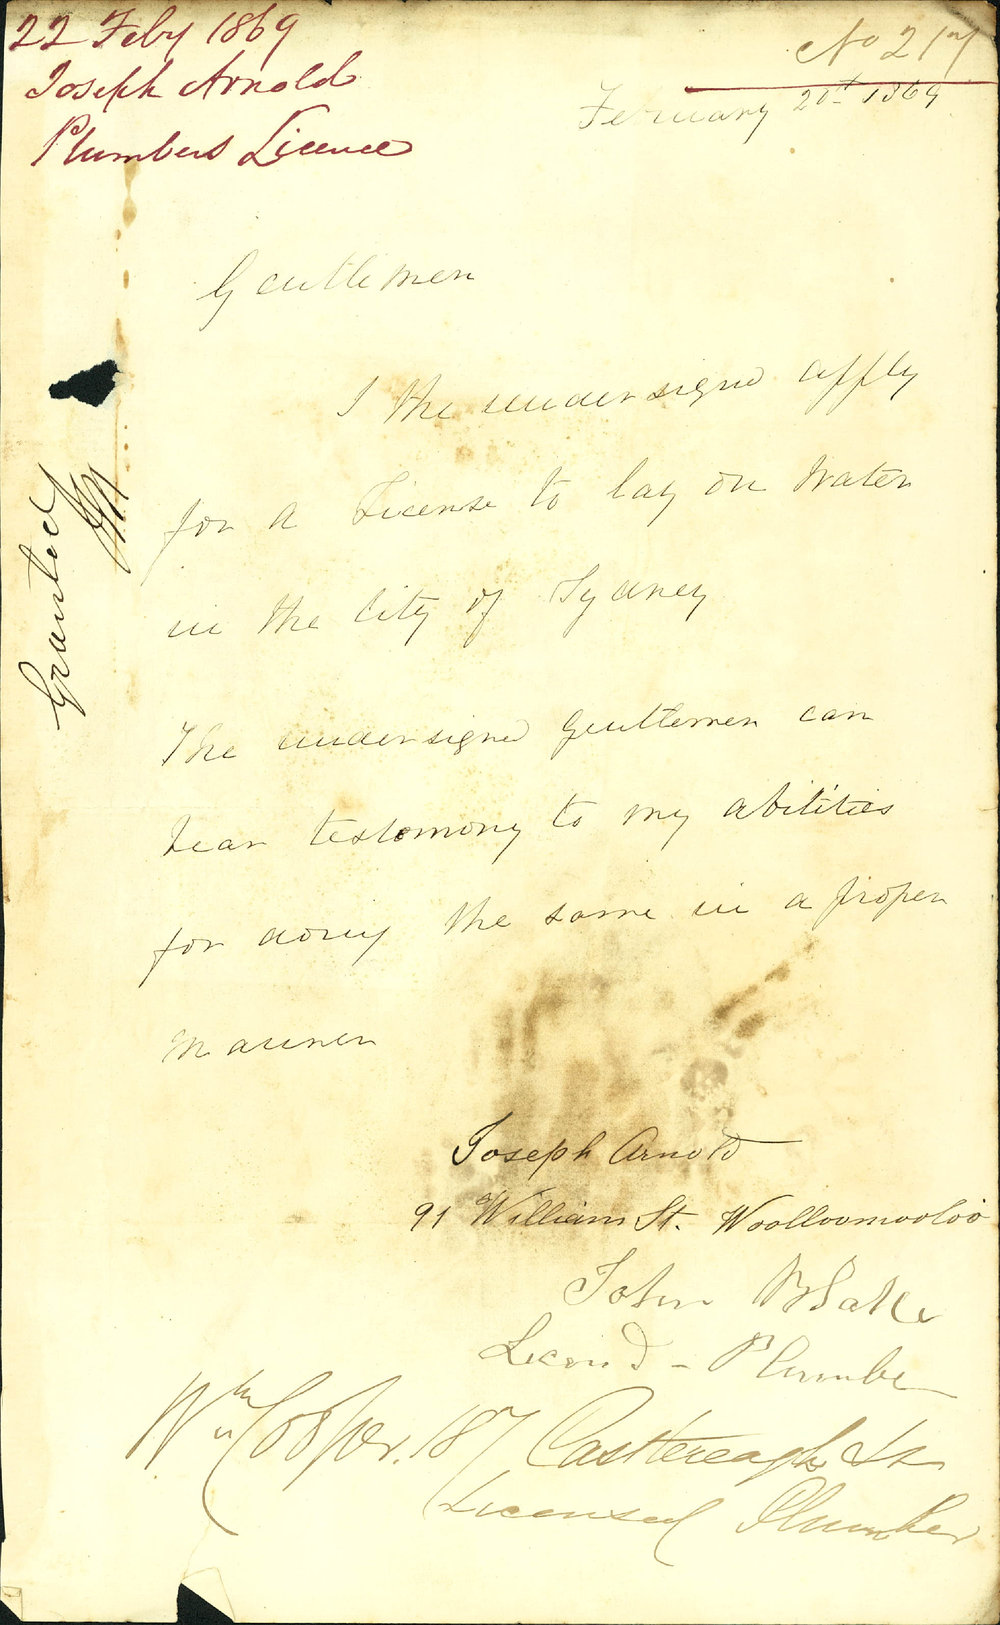 22 Feby 1869
Joseph Arnold
Plumbers Licence
No 217
February 20th 1869
Gentlemen
I the undersigned apply
for a License to lay on Water
in the City of Sydney
The undersigned Gentlemen can
bear testomony to my abilities
for doing the same in a proper
manner
Granted
Joseph Arnold
91 William St. Woolloomooloo
John Blake
Licend - Plumber
Wm Cooper. 187 Casttereagh St
Licensed Plumber